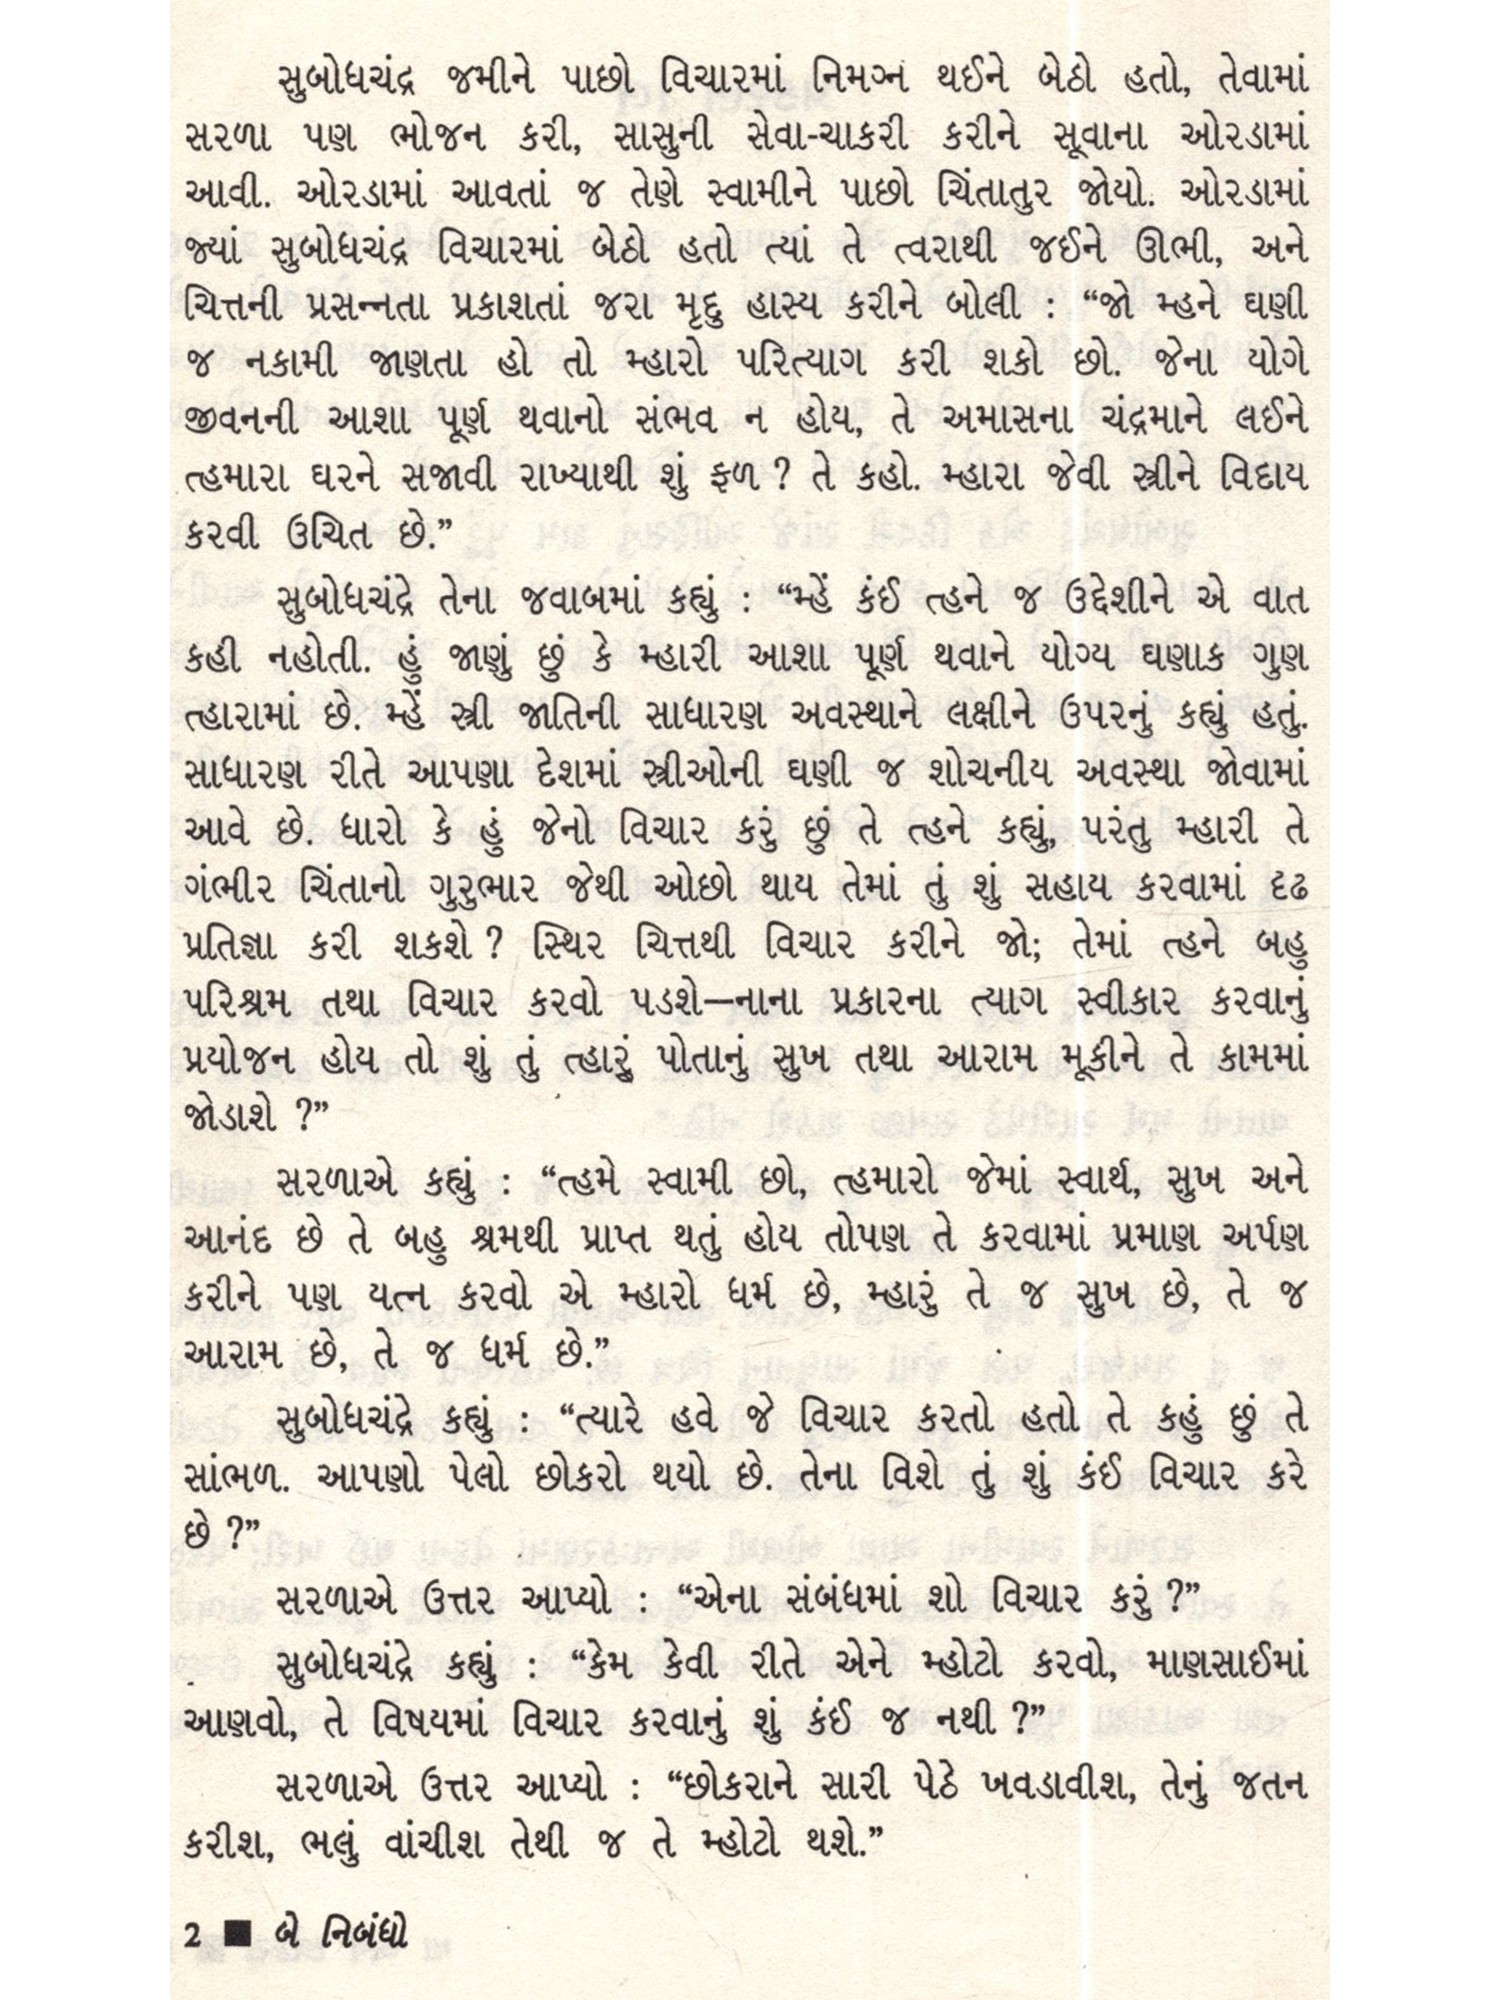 સુબોધચંદ્ર જમીને પાછો વિચારમાં નિમગ્ન થઈને બેઠો હતો, તેવામાં
સરળા પણ ભોજન કરી, સાસુની સેવા-ચાકરી કરીને સૂવાના ઓરડામાં
આવી. ઓરડામાં આવતાં જ તેણે સ્વામીને પાછો ચિંતાતુર જોયો. ઓરડામાં
જ્યાં સુબોધચંદ્ર વિચારમાં બેઠો હતો ત્યાં તે ત્વરાથી જઈને ઊભી, અને
ચિત્તની પ્રસન્નતા પ્રકાશતાં જરા મૃદુ હાસ્ય કરીને બોલી : “જો મ્હને ઘણી
જ નકામી જાણતા હો તો મ્હારો પરિત્યાગ કરી શકો છો. જેના યોગે
જીવનની આશા પૂર્ણ થવાનો સંભવ ન હોય, તે અમાસના ચંદ્રમાને લઈને
ત્હમારા ઘરને સજાવી રાખ્યાથી શું ફળ ? તે કહો. મ્હારા જેવી સ્ત્રીને વિદાય
કરવી ઉચિત છે.”
સુબોધચંદ્રે તેના જવાબમાં કહ્યું : “મ્હેં કંઈ ત્હને જ ઉદ્દેશીને એ વાત
કહી નહોતી. હું જાણું છું કે મ્હારી આશા પૂર્ણ થવાને યોગ્ય ઘણાક ગુણ
ત્હારામાં છે. મ્હેં સ્ત્રી જાતિની સાધારણ અવસ્થાને લક્ષીને ઉપરનું કહ્યું હતું.
સાધારણ રીતે આપણા દેશમાં સ્ત્રીઓની ઘણી જ શોચનીય અવસ્થા જોવામાં
આવે છે. ધારો કે હું જેનો વિચાર કરું છું તે ત્હને કહ્યું, પરંતુ મ્હારી તે
ગંભીર ચિંતાનો ગુરુભાર જેથી ઓછો થાય તેમાં તું શું સહાય કરવામાં દૃઢ
પ્રતિજ્ઞા કરી શકશે ? સ્થિર ચિત્તથી વિચાર કરીને જો; તેમાં ત્હને બહુ
પરિશ્રમ તથા વિચાર કરવો પડશે—નાના પ્રકારના ત્યાગ સ્વીકાર કરવાનું
પ્રયોજન હોય તો શું તું ત્હારું પોતાનું સુખ તથા આરામ મૂકીને તે કામમાં
જોડાશે ?”
સરળાએ કહ્યું : “ત્હમે સ્વામી છો, ત્હમારો જેમાં સ્વાર્થ, સુખ અને
આનંદ છે તે બહુ શ્રમથી પ્રાપ્ત થતું હોય તોપણ તે કરવામાં પ્રમાણ અર્પણ
કરીને પણ યત્ન કરવો એ મ્હારો ધર્મ છે, મ્હારું તે જ સુખ છે, તે જ
આરામ છે, તે જ ધર્મ છે.”
સુબોધચંદ્રે કહ્યું : “ત્યારે હવે જે વિચાર કરતો હતો તે કહું છું તે
સાંભળ. આપણો પેલો છોકરો થયો છે. તેના વિશે તું શું કંઈ વિચાર કરે
છે ?”
સરળાએ ઉત્તર આપ્યો : “એના સંબંધમાં શો વિચાર કરું ?”
સુબોધચંદ્રે કહ્યું : “કેમ કેવી રીતે એને મ્હોટો કરવો, માણસાઈમાં
આણવો, તે વિષયમાં વિચાર કરવાનું શું કંઈ જ નથી ?”
સરળાએ ઉત્તર આપ્યો : “છોકરાને સારી પેઠે ખવડાવીશ, તેનું જતન
કરીશ, ભલું વાંચીશ તેથી જ તે મ્હોટો થશે.”
2 ■ બે નિબંધો